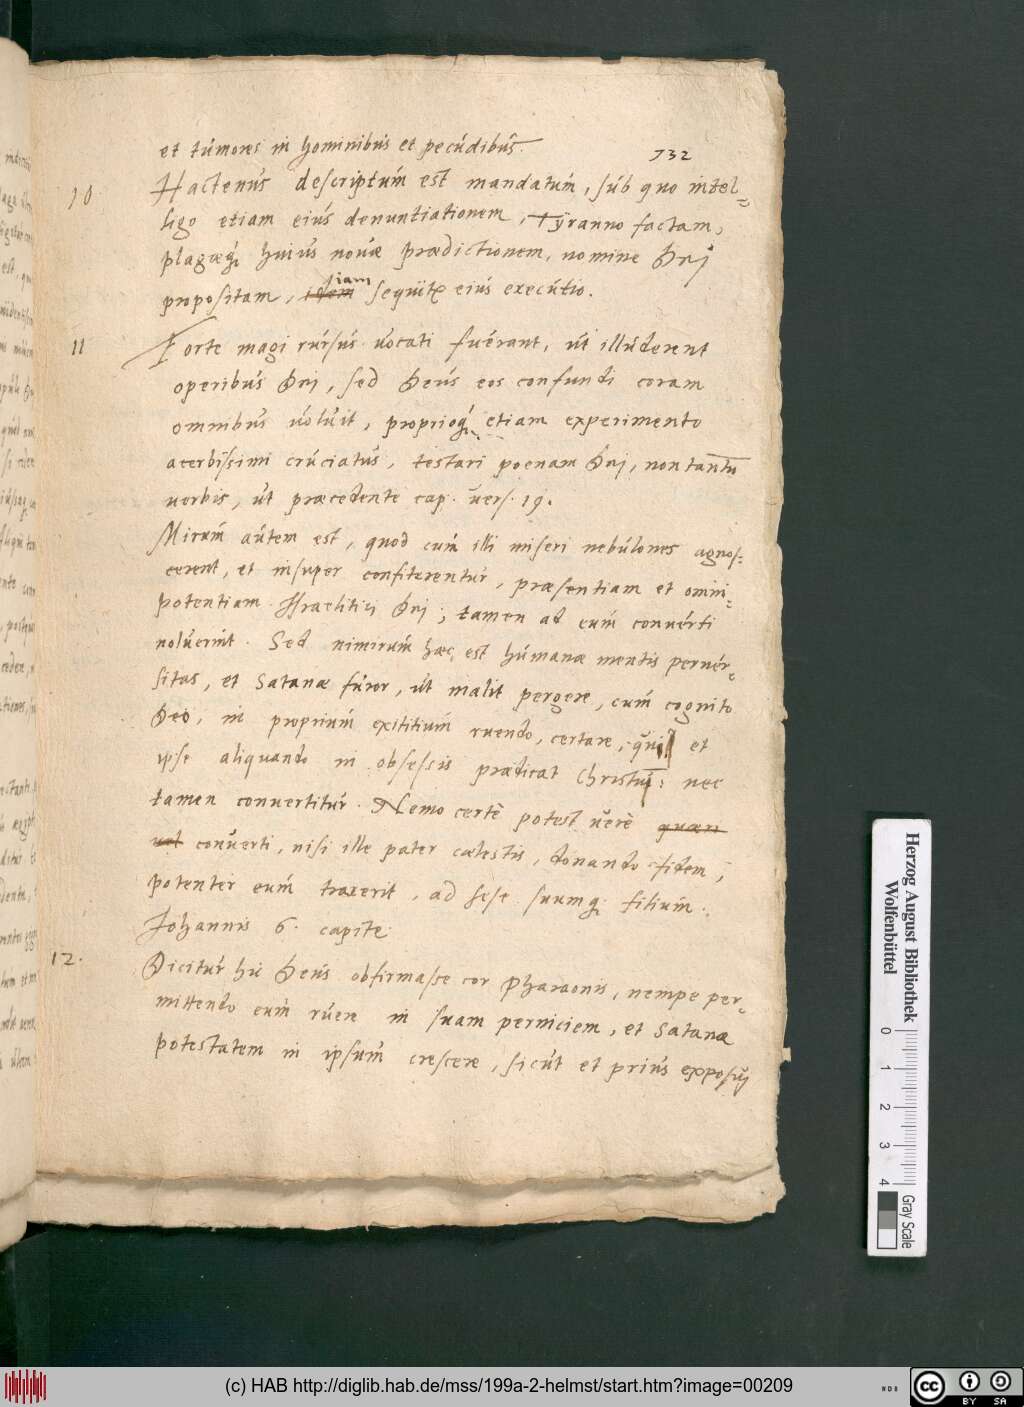 et tumores in hominibus et pecudibus.
732
10 Hactenus descriptum est mandatum, sub quo intel=
ligo etiam eius denuntiationem, Tyranno factam,
plagaeq; huius nouae praedictionem, nomine Dei
propositam, iam sequitr eius executio.
11 Forte magi rursus vocati fuerant, ut illuderent
operibus Dei, sed Deus eos confundi coram
omnibus voluit, proprioq; etiam experimento
acerbissimi cruciatus, testari poenam Dei, non tantu
verbis, ut praecedente cap. vers. 19.
Mirum autem est, quod cum illi miseri nebulones agnos=
cerent, et insuper confiterentur, praesentiam et omni=
potentiam Israelitici Dei; tamen ad eum conuerti
noluerint. Sed nimirum haec est humanae mentis peruer=
sitas, et Satanae furor, ut malit pergere, cum cognito
Deo, in proprium exititium ruendo, certare, qui et
ipse aliquando in obsessis praedicat Christum: nec
tamen conuertitur. Nemo certè potest verè quaeri
vel conuerti, nisi ille pater caelestis, donando fidem,
potenter eum traxerit, ad sese suumq; filium.
Johannis 6. capite
12. Dicitur hic Deus obfirmasse cor Pharaonis, nempe per=
mittendo eum ruere in suam perniciem, et Satanae
potestatem in ipsum crescere, sicut et prius exposui
Herzog August Bibliothek
Wolfenbüttel
0 1 2 3 4
Gray Scale
(c) HAB http://diglib.hab.de/mss/199a-2-helmst/start.htm?image=00209
cc BY SA